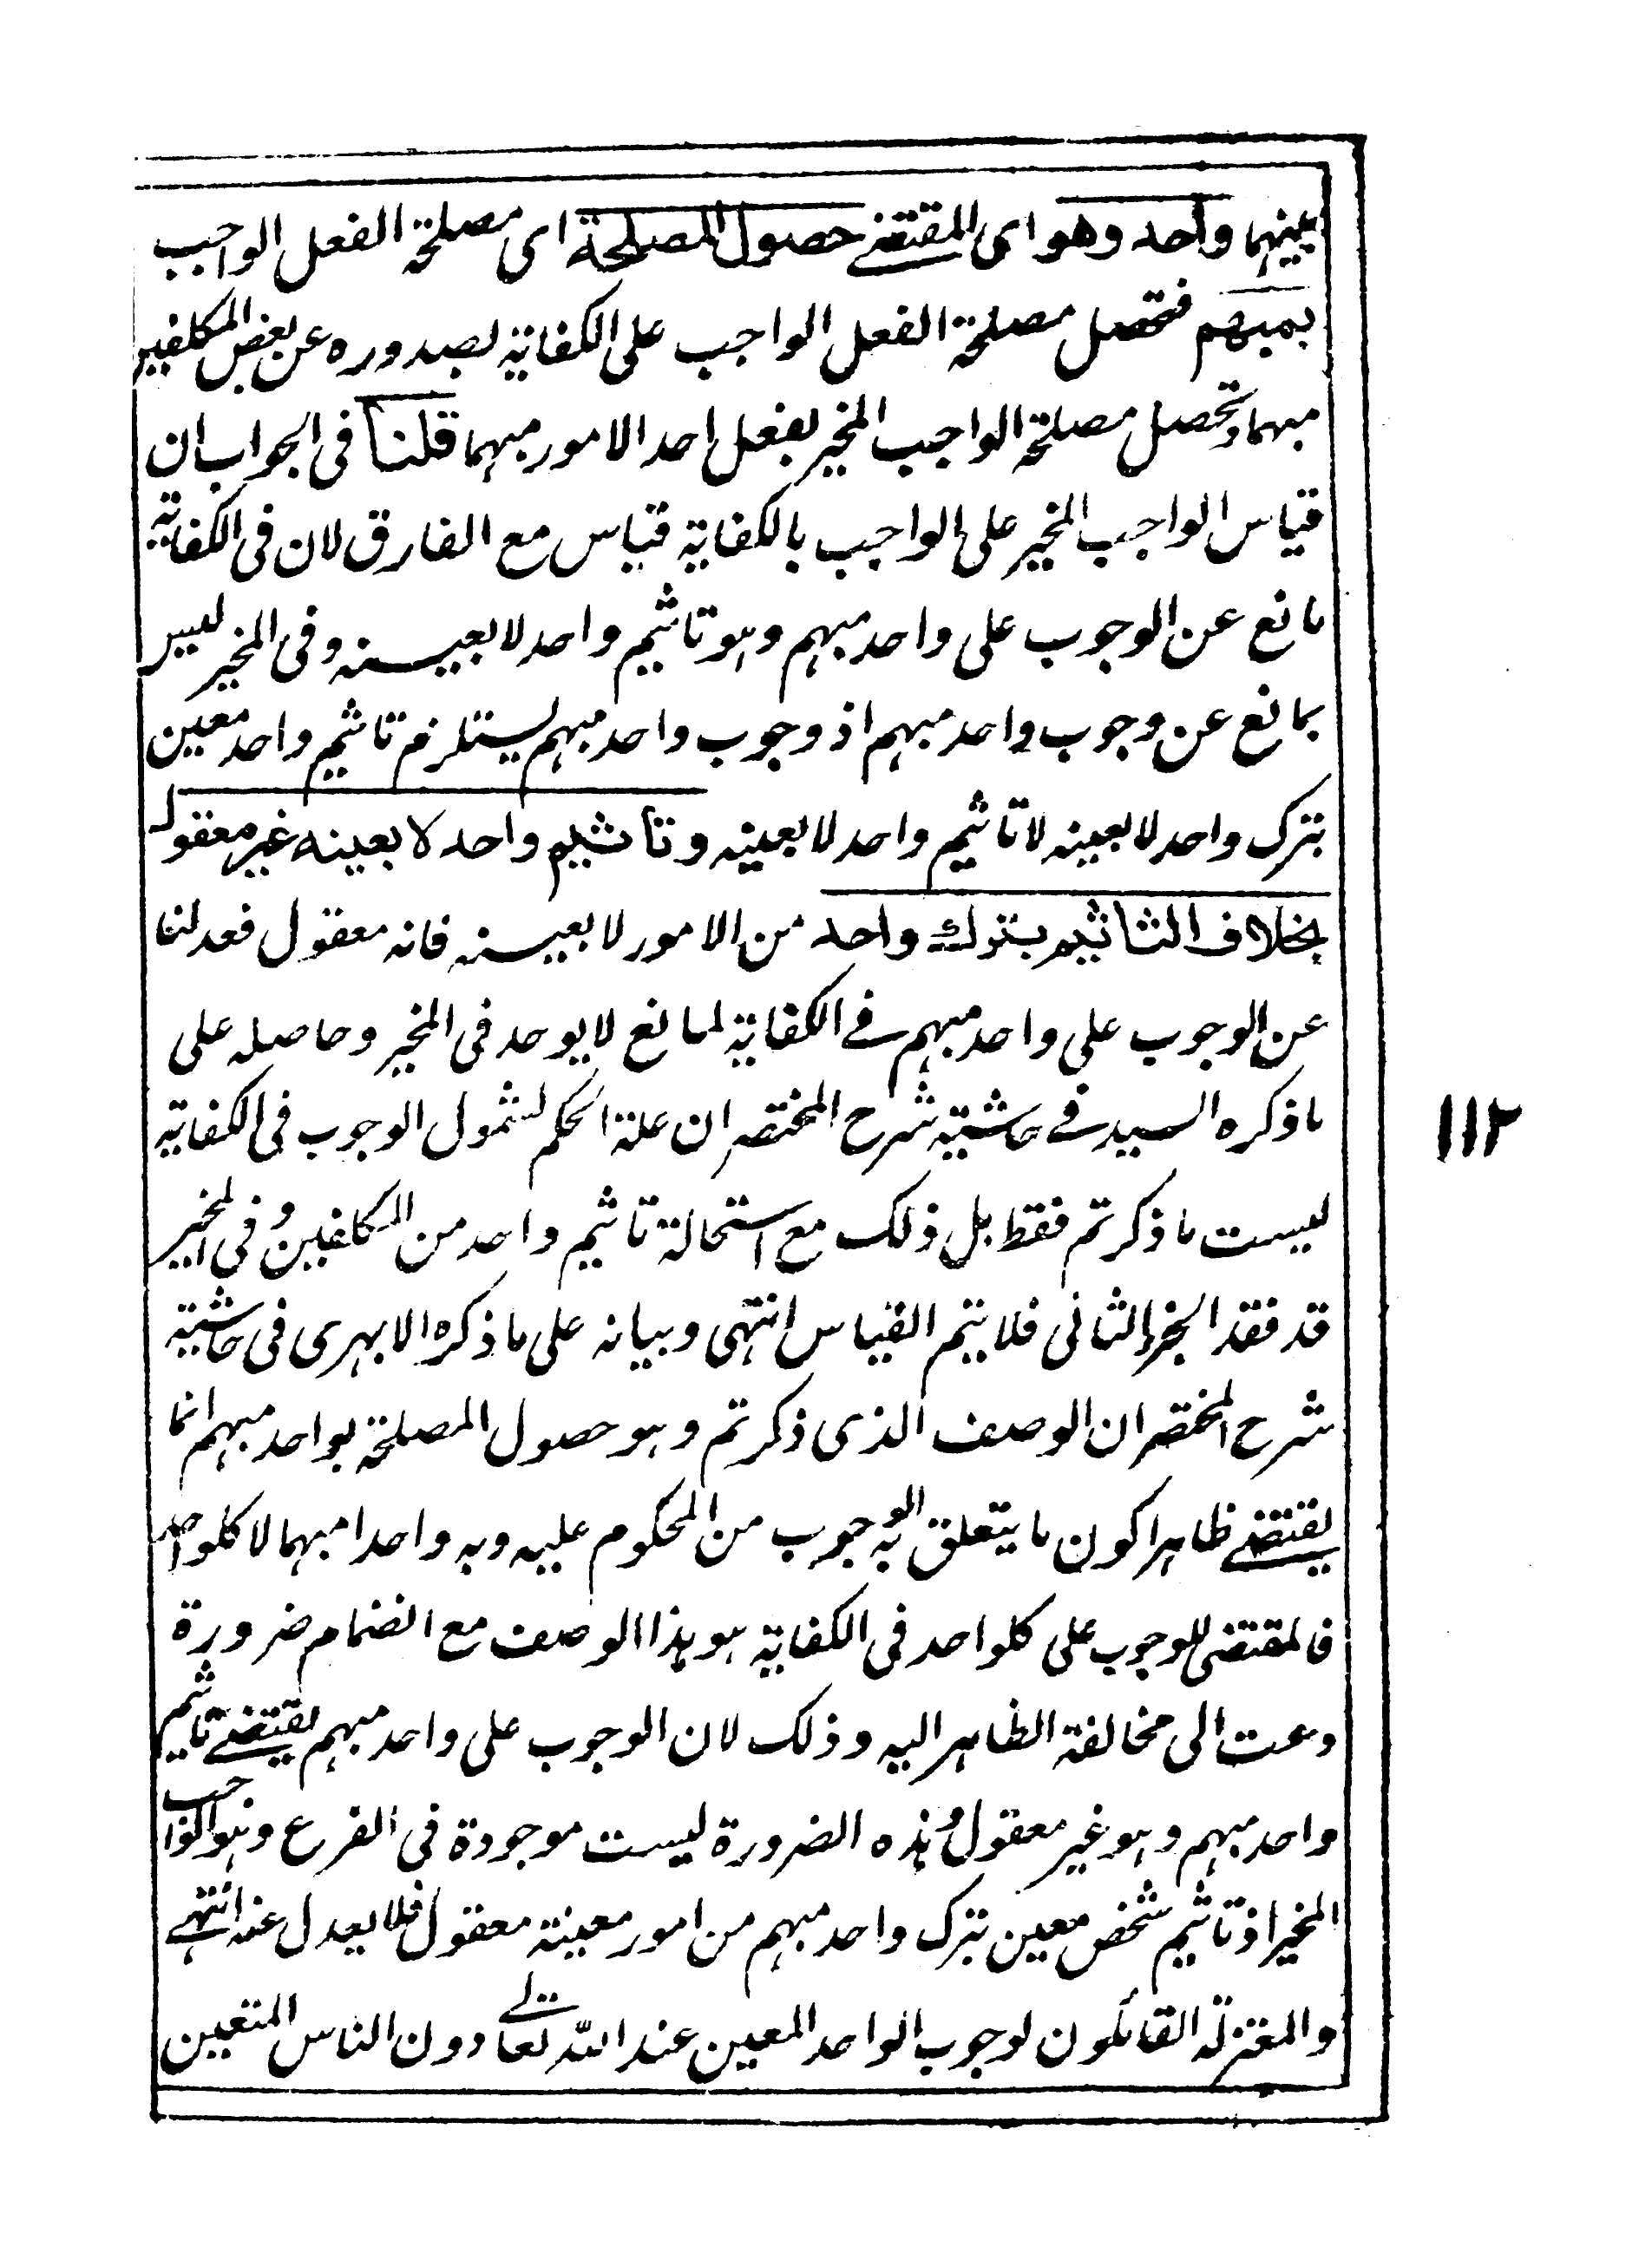 بينهما واحد وهو اى المقتضے حصول المصلحة اى مصلحة الفعل الواجب
بمبهم فتحصل مصلحة الفعل الواجب على الكفاية بصدوره عن بعض المكلفين
مبهما وتحصل مصلحة الواجب المخير بفعل احد الامور مبهما قلنا فى الجواب ان
قياس الواجب المخير على الواجب بالكفاية قياس مع الفارق لان فى الكفاية
مانع عن الوجوب على واحد مبهم وهو تاثيم واحد لا بعينه وفى المخير ليس
بمانع عن وجوب واحد مبهم اذ وجوب واحد مبهم يستلزم تاثيم واحد معين
بترك واحد لا بعينه لا تاثيم واحد لا بعينه وتاثيم واحد لا بعينه غير معقول
بخلاف التاثيم بترك واحد من الامور لا بعينه فانه معقول فعدلنا
عن الوجوب على واحد مبهم فے الكفاية لمانع لا يوجد فى المخير وحاصله على
ما ذكره السيد فے حاشية شرح المختصر ان علة الحكم لشمول الوجوب فى الكفاية
ليست ما ذكرتم فقط بل ذلك مع استحالة تاثيم واحد من المكلفين وفى المخير
قد فقد الجزء الثانى فلا يتم القياس انتهى وبيانه على ما ذكره الابهرى فى حاشية
شرح المختصر ان الوصف الذى ذكرتم وهو حصول المصلحة بواحد مبهم انما
يقتضے ظاهرا كون ما يتعلق به الوجوب من المحكوم عليه وبه واحدا مبهما لا كلواحد
فالمقتضى للوجوب على كلواحد فى الكفاية هو هذا الوصف مع انضمام ضرورة
دعت الى مخالفة الظاهر اليه وذلك لان الوجوب على واحد مبهم يقتضے تاثيم
واحد مبهم وهو غير معقول وهذه الضرورة ليست موجودة فى الفرع وهو الواجب
المخير اذ تاثيم شخص معين بترك واحد مبهم من امور معينة معقول فلا يعدل عنه انتهے
والمعتزلة القائلون لوجوب الواحد المعين عند الله تعالے دون الناس المتعين
١١٢